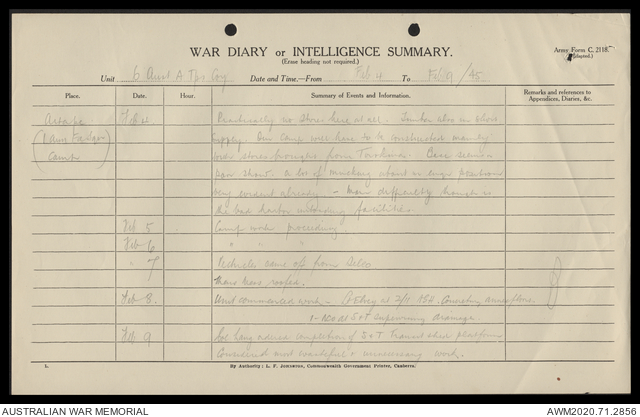 WAR DIARY or INTELLIGENCE SUMMARY.
(Erase heading not required.)
Army Form C. 2118.
(Adapted.)
Unit 6 Aust A Tps Coy Date and Time.—From Feb 4 To Feb 9 /45
Place. Date. Hour. Summary of Events and Information. Remarks and references to Appendices, Diaries, &c.
Aitape Feb 4 Practically no Stores here at all. Timber also in short
supply. Our Camp will have to be constructed mainly
Camp with stores brought from Base seems a
poor show. A lot of about in engr
being evident already - main difficulty though is
the bad harbor unloading facilities
Feb 5 Camp work proceeding
Feb 6 " " "
" 7 Vehicles came off from
Mens mess roofed.
Feb 8. Unit commenced work - at 2/11 AGH.
at S & T supervising drainage.
Feb 9 completion of S & T Transit shed platform
Considered most wasteful & unnecessary work.
L. By Authority: L. F. Johnston, Commonwealth Government Printer, Canberra.
AUSTRALIAN WAR MEMORIAL AWM2020.71.2856